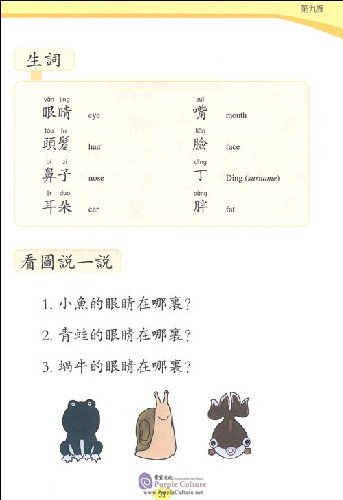 第九課
生詞
yǎn jīng zuǐ
眼睛 eye 嘴 mouth
tóu fǎ liǎn
頭髮 hair 臉 face
bí zi dīng
鼻子 nose 丁 Ding (surname)
ěr duo pàng
耳朵 ear 胖 fat
看圖說一說
1. 小魚的眼睛在哪裏？
2. 青蛙的眼睛在哪裏？
3. 蝸牛的眼睛在哪裏？
紫宸文化
Purple Culture
www.PurpleCulture.net